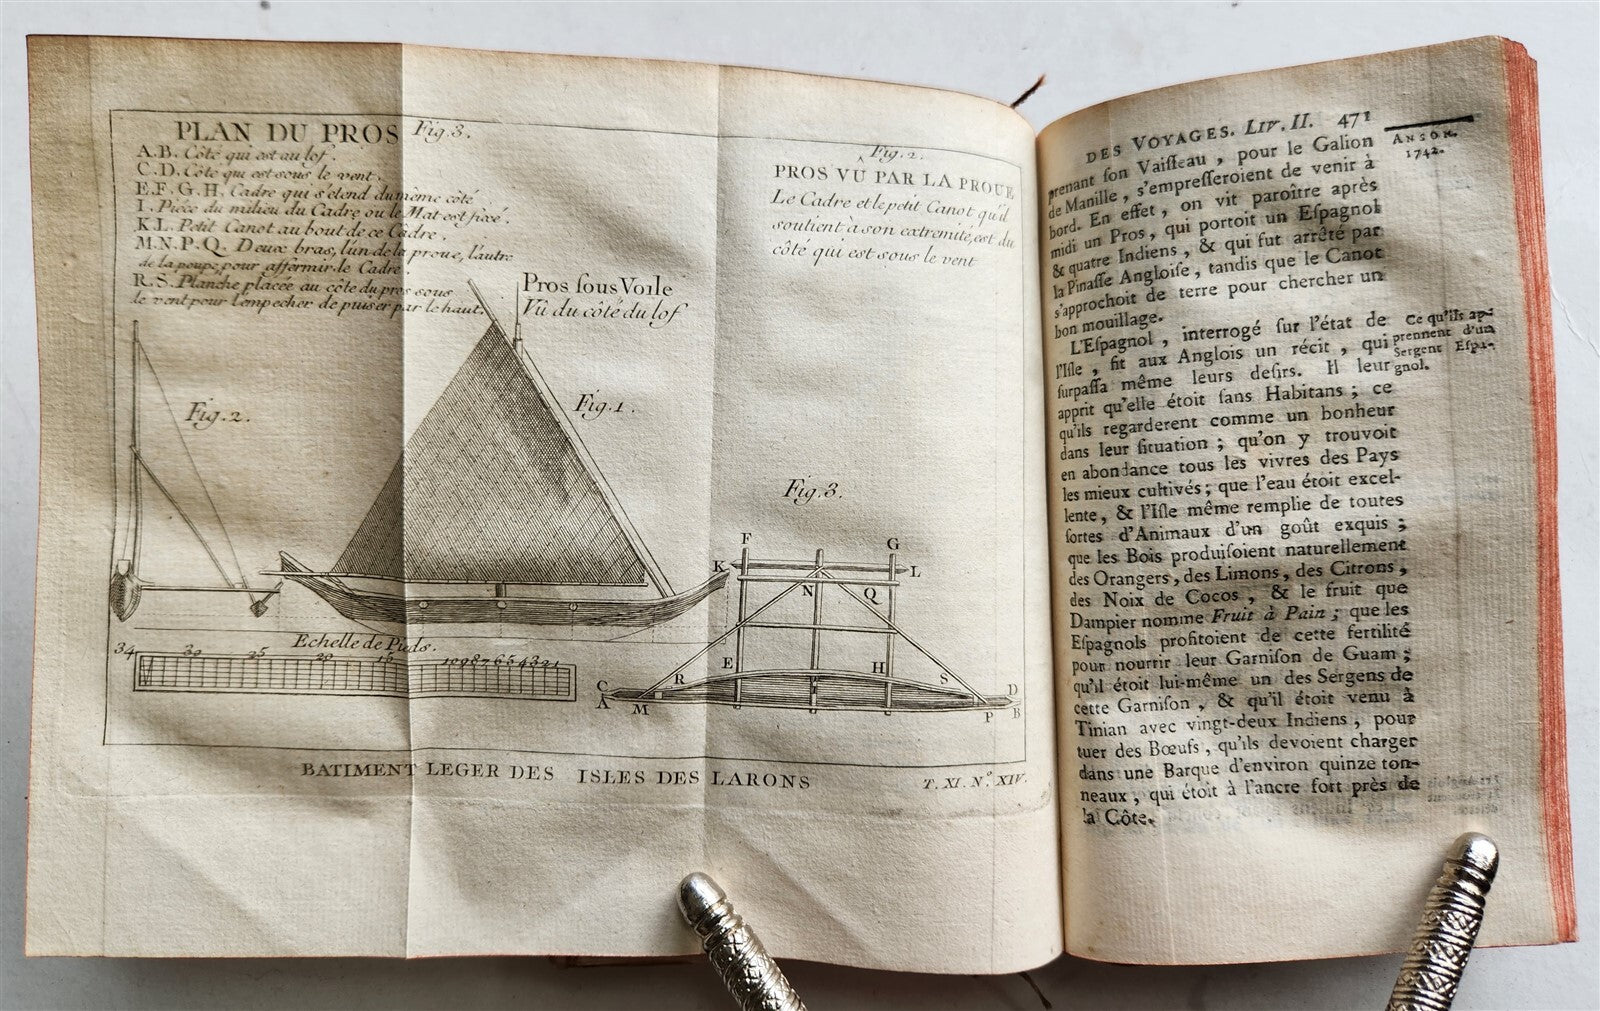 PLAN DU PROS Fig. 3.
A.B. Côté qui est au lof.
C.D. Côté qui est sous le vent.
E.F.G.H. Cadre qui s'étend du même côté
I. Piéce du milieu du Cadre ou le Mat est fixé.
K L. Petit Canot au bout de ce Cadre.
M.N.P.Q. Deux bras, l'un de la proue, l'autre
de la poupe, pour affermir le Cadre.
R.S. Planche placée au côte du pros sous
le vent pour l'empecher de puiser par le haut.
Pros sous Voile
Vû du côté du lof
Fig. 2.
PROS VÛ PAR LA PROUE
Le Cadre et le petit Canot qu'il
soutient à son extremité, est du
côté qui est sous le vent
Fig. 2.
Fig. 1.
Fig. 3.
F G
K L
N Q
E H
R S
C D
A B
M P
Echelle de Pieds.
34 30 25 20 15 10 9 8 7 6 5 4 3 2 1
BATIMENT LEGER DES ISLES DES LARONS
T. XI. N.º XIV.
DES VOYAGES. Liv. II. 471
ANSON.
1742.
prenant ſon Vaiſſeau, pour le Galion
de Manille, s'empreſſeroient de venir à
bord. En effet, on vit paroître après
midi un Pros, qui portoit un Eſpagnol
& quatre Indiens, & qui fut arrêté par
la Pinaſſe Angloiſe, tandis que le Canot
s'approchoit de terre pour chercher un
bon mouillage.
L'Eſpagnol, interrogé ſur l'état de
l'Iſle, fit aux Anglois un récit, qui
ſurpaſſa même leurs deſirs. Il leur
apprit qu'elle étoit ſans Habitans; ce
qu'ils regarderent comme un bonheur
dans leur ſituation; qu'on y trouvoit
en abondance tous les vivres des Pays
les mieux cultivés; que l'eau étoit excel-
lente, & l'Iſle même remplie de toutes
ſortes d'Animaux d'un goût exquis;
que les Bois produiſoient naturellement
des Orangers, des Limons, des Citrons,
des Noix de Cocos, & le fruit que
Dampier nomme Fruit à Pain; que les
Eſpagnols profitoient de cette fertilité
pour nourrir leur Garniſon de Guam;
qu'il étoit lui-même un des Sergens de
cette Garniſon, & qu'il étoit venu à
Tinian avec vingt-deux Indiens, pour
tuer des Bœufs, qu'ils devoient charger
dans une Barque d'environ quinze ton-
neaux, qui étoit à l'ancre fort près de
la Côte.
Ce qu'ils ap-
prennent d'un
Sergent Eſpa-
gnol.